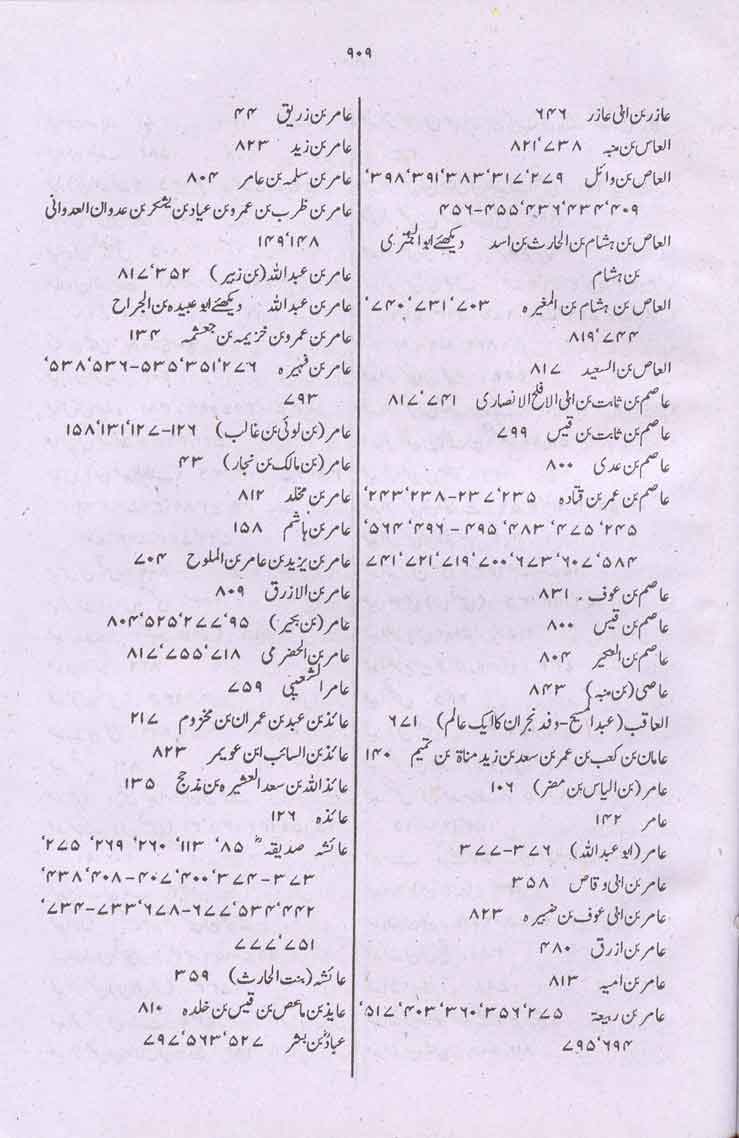 ۹۰۹
عازر بن ابی عازر ۶۴۶
العاص بن منبہ ۷۳۸‘۸۲۱
العاص بن وائل ۲۷۹‘۳۱۷‘۳۸۳‘۳۹۱‘۳۹۸‘
۴۰۹‘۴۳۴‘۴۳۶‘۴۵۵-۴۵۶
العاص بن ہشام بن الحارث بن اسد دیکھئے ابوالبختری
بن ہشام
العاص بن ہشام بن المغیرہ ۷۰۳‘۷۳۱‘۷۴۰‘
۷۴۴‘۸۱۹
العاص بن السعید ۸۱۷
عاصم بن ثابت بن ابی الافلح الانصاری ۷۴۱‘۸۱۷
عاصم بن ثابت بن قیس ۷۹۹
عاصم بن عدی ۸۰۰
عاصم بن عمر بن قتادہ ۲۳۵‘۲۳۷-۲۳۸‘۲۴۳‘
۲۴۵‘۴۷۵‘۴۸۳‘۴۹۵-۴۹۶‘۵۶۴‘
۵۸۴‘۶۰۷‘۶۷۳‘۷۰۰‘۷۱۹‘۷۲۱‘۷۴۱
عاصم بن عوف ۸۳۱
عاصم بن قیس ۸۰۰
عاصم بن العکیر ۸۰۴
عاصی (بن منبہ) ۸۴۳
العاقب (عبدالمسیح-وفد نجران کا ایک عالم) ۶۷۱
عامان بن کعب بن عمر بن سعد بن زید مناۃ بن تمیم ۱۴۰
عامر (بن الیاس بن مضر) ۱۰۶
عامر ۱۴۲
عامر (ابو عبداللہ) ۳۷۶-۳۷۷
عامر بن ابی وقاص ۳۵۸
عامر بن ابی عوف بن ضبیرہ ۸۲۳
عامر بن ازرق ۴۸۰
عامر بن امیہ ۸۱۳
عامر بن ربیعۃ ۲۷۵‘۳۵۶‘۳۶۰‘۴۰۳‘۵۱۷‘
۶۹۴‘۷۹۵
عامر بن زریق ۴۴
عامر بن زید ۸۲۳
عامر بن سلمہ بن عامر ۸۰۴
عامر بن ظرب بن عمرو بن عیاد بن یشکر بن عدوان العدوانی
۱۴۸‘۱۴۹
عامر بن عبداللہ (بن زبیر) ۳۵۲‘۸۱۷
عامر بن عبداللہ دیکھئے ابو عبیدہ بن الجراح
عامر بن عمرو بن خزیمہ بن جعثمہ ۱۳۴
عامر بن فہیرہ ۲۷۶‘۳۵۱‘۵۳۵-۵۳۶‘۵۳۸‘
۷۹۳
عامر (بن لوئی بن غالب) ۱۲۶-۱۲۷‘۱۳۱‘۱۵۸
عامر (بن مالک بن نجار) ۴۳
عامر بن مخلد ۸۱۲
عامر بن ہاشم ۱۵۸
عامر بن یزید بن عامر بن الملوح ۷۰۴
عامر بن الازرق ۸۰۹
عامر (بن بحیر) ۹۵‘۲۷۷‘۵۲۵‘۸۰۴
عامر بن الحضرمی ۷۱۸‘۷۵۵‘۸۱۷
عامر الشعبی ۷۵۹
عائذ بن عبد بن عمران بن مخزوم ۲۱۷
عائذ بن السائب ابن عویمر ۸۲۳
عائذ اللہ بن سعد العشیرہ بن مذحج ۱۳۵
عائذہ ۱۲۶
عائشہ صدیقہؓ ۸۵‘ ۱۱۳‘ ۲۶۰‘ ۲۶۹‘ ۲۷۵‘
۳۷۳-۳۷۴‘۴۰۰‘۴۰۷-۴۰۸‘۴۳۸‘
۴۴۲‘۵۳۴‘۶۷۷-۶۷۸‘۷۳۳-۷۳۴‘
۷۵۱‘۷۷۷
عائشہ (بنت الحارث) ۳۵۹
عایذ بن ماعص بن قیس بن خلدہ ۸۱۰
عبادؓ بن بشر ۵۲۷‘۵۶۳‘۷۹۷